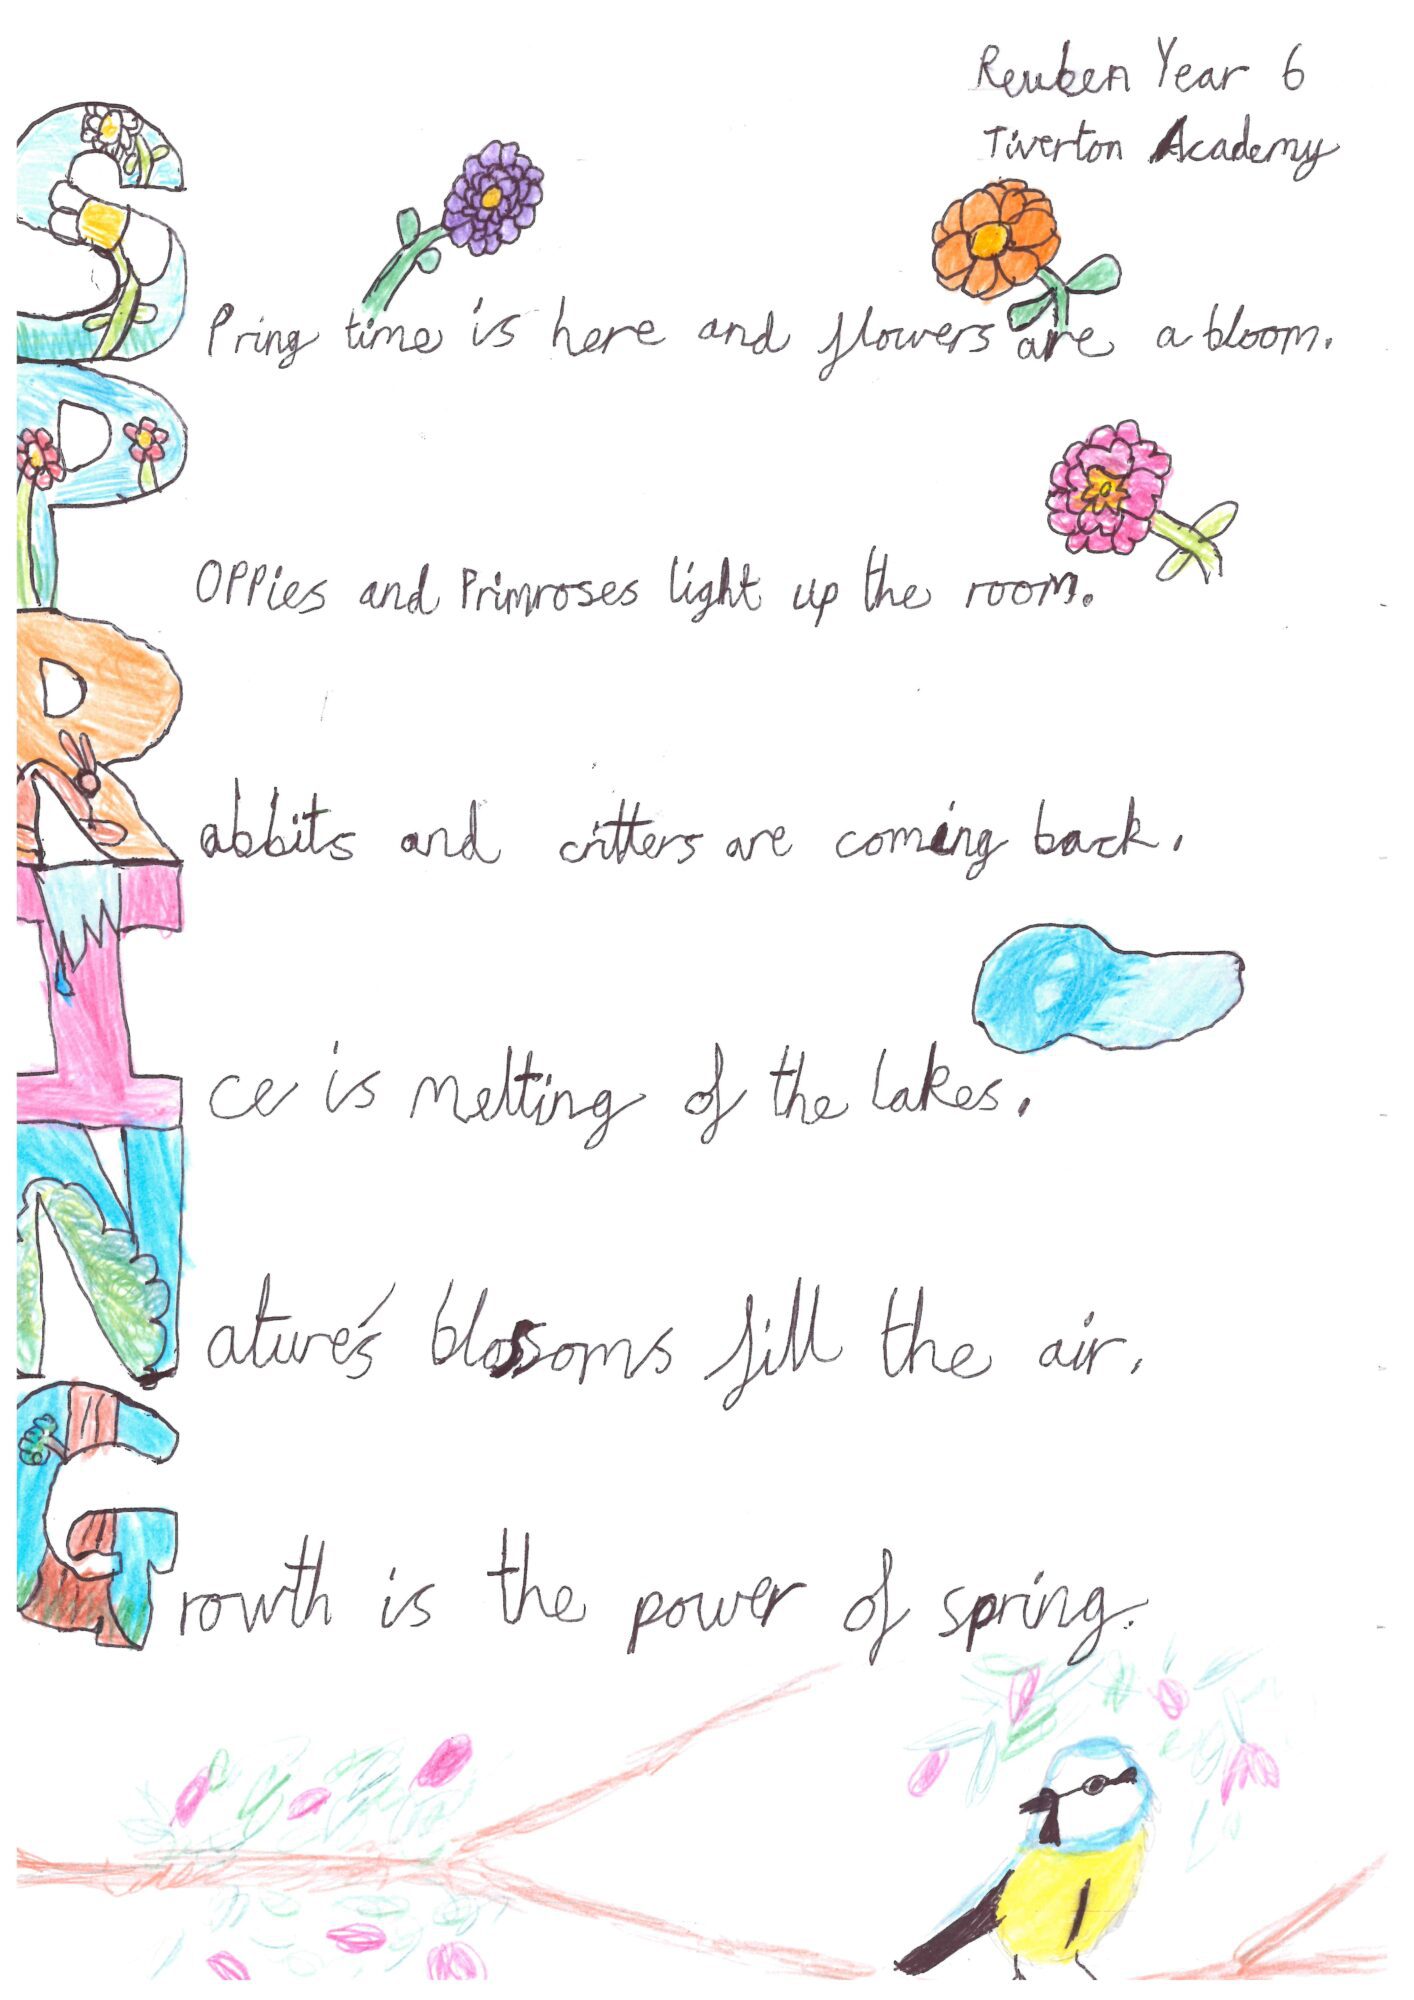 Reuben Year 6
Tiverton Academy
SPring time is here and flowers are a bloom.
POPPies and Primroses light up the room.
Rabbits and critters are coming back.
Ice is melting of the lakes.
Nature's blossoms fill the air.
Growth is the power of spring.